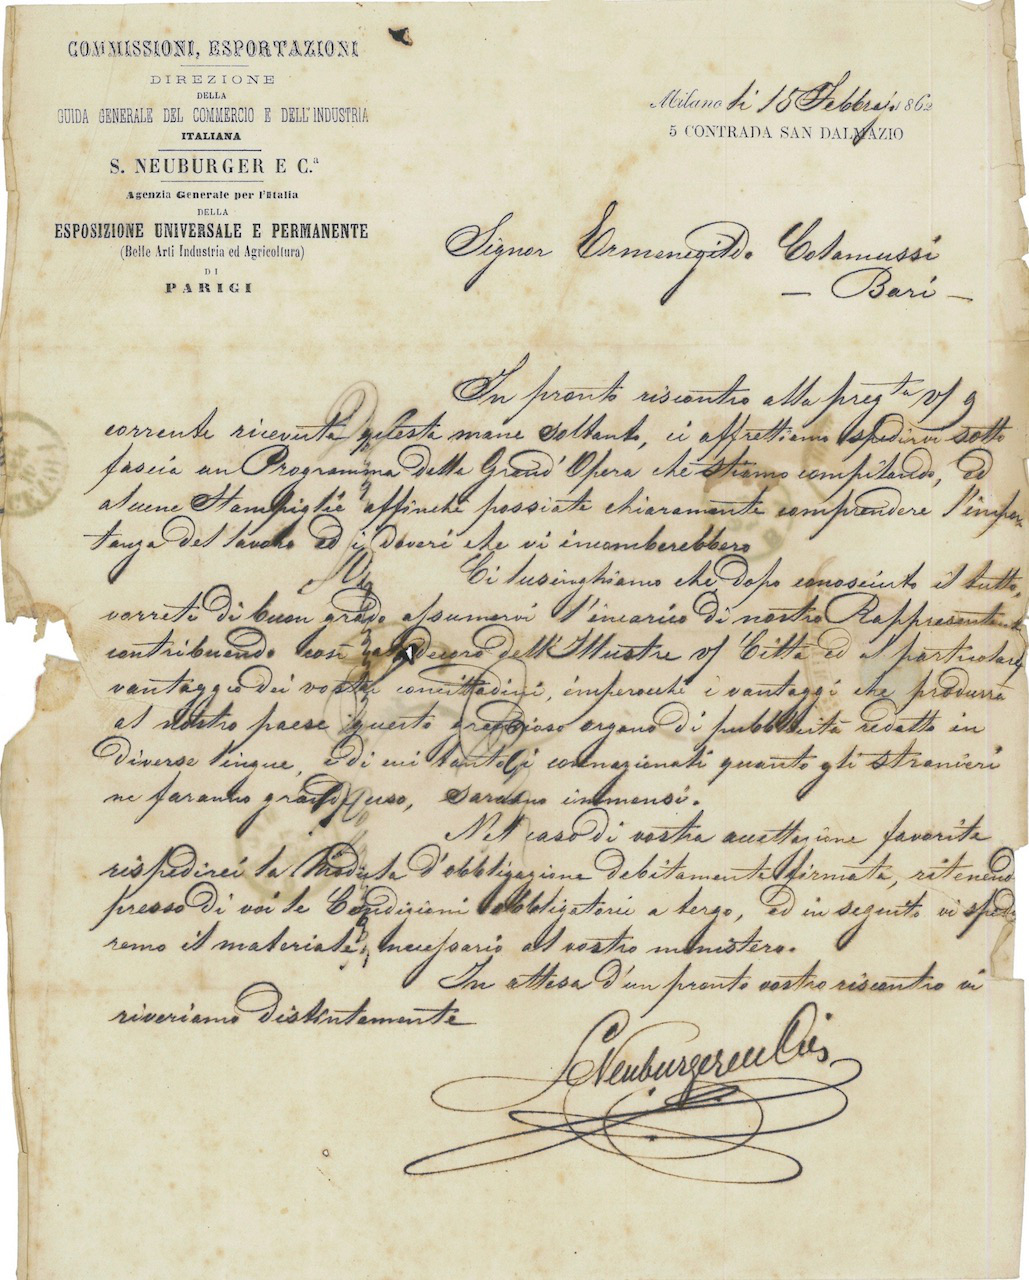 COMMISSIONI, ESPORTAZIONI
DIREZIONE
DELLA
GUIDA GENERALE DEL COMMERCIO E DELL'INDUSTRIA
ITALIANA
S. NEUBURGER E C.ª
Agenzia Generale per l'Italia
DELLA
ESPOSIZIONE UNIVERSALE E PERMANENTE
(Belle Arti Industria ed Agricoltura)
DI
PARIGI
Milano li 15 Febbrajo 1862
5 CONTRADA SAN DALMAZIO
Signor Ermenegildo Colamussi
— Bari —
In pronto riscontro alla preg.ta V/ 9
corrente ricevuta questa mane soltanto, ci affrettiamo spedirvi sotto
fascia un Programma della Grand'Opera che stiamo compilando, ed
alcune Stampiglie affinchè possiate chiaramente comprendere l'impor
tanza del lavoro ed i doveri che vi incomberebbero
Ci lusinghiamo che dopo conosciuto il tutto,
vorrete di buon grado assumervi l'incarico di nostro Rappresentante
contribuendo con al decoro dell'Illustre V/ Città ed al particolare
vantaggio dei vostri concittadini, imperocchè i vantaggi che produrrà
al nostro paese questo grandioso organo di pubblicità redatto in
diverse lingue, e di cui tanto i connazionali quanto gli stranieri
ne faranno grande uso, saranno immensi.
Nel caso di vostra accettazione favorite
rispedirci la Modula d'obbligazione debitamente firmata, ritenendo
presso di voi le Condizioni obbligatorie a tergo, ed in seguito vi spedi
remo il materiale necessario al vostro ministero.
In attesa d'un pronto vostro riscontro vi
riveriamo distintamente
S Neuburger e C.